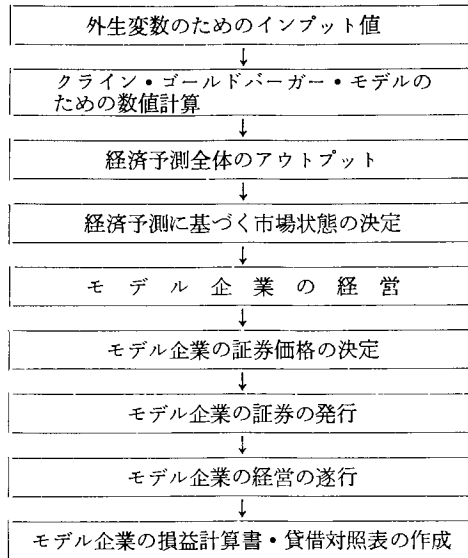 外生変数のためのインプット値
↓
クライン・ゴールドバーガー・モデルの
ための数値計算
↓
経済予測全体のアウトプット
↓
経済予測に基づく市場状態の決定
↓
モデル企業の経営
↓
モデル企業の証券価格の決定
↓
モデル企業の証券の発行
↓
モデル企業の経営の遂行
↓
モデル企業の損益計算書・貸借対照表の作成